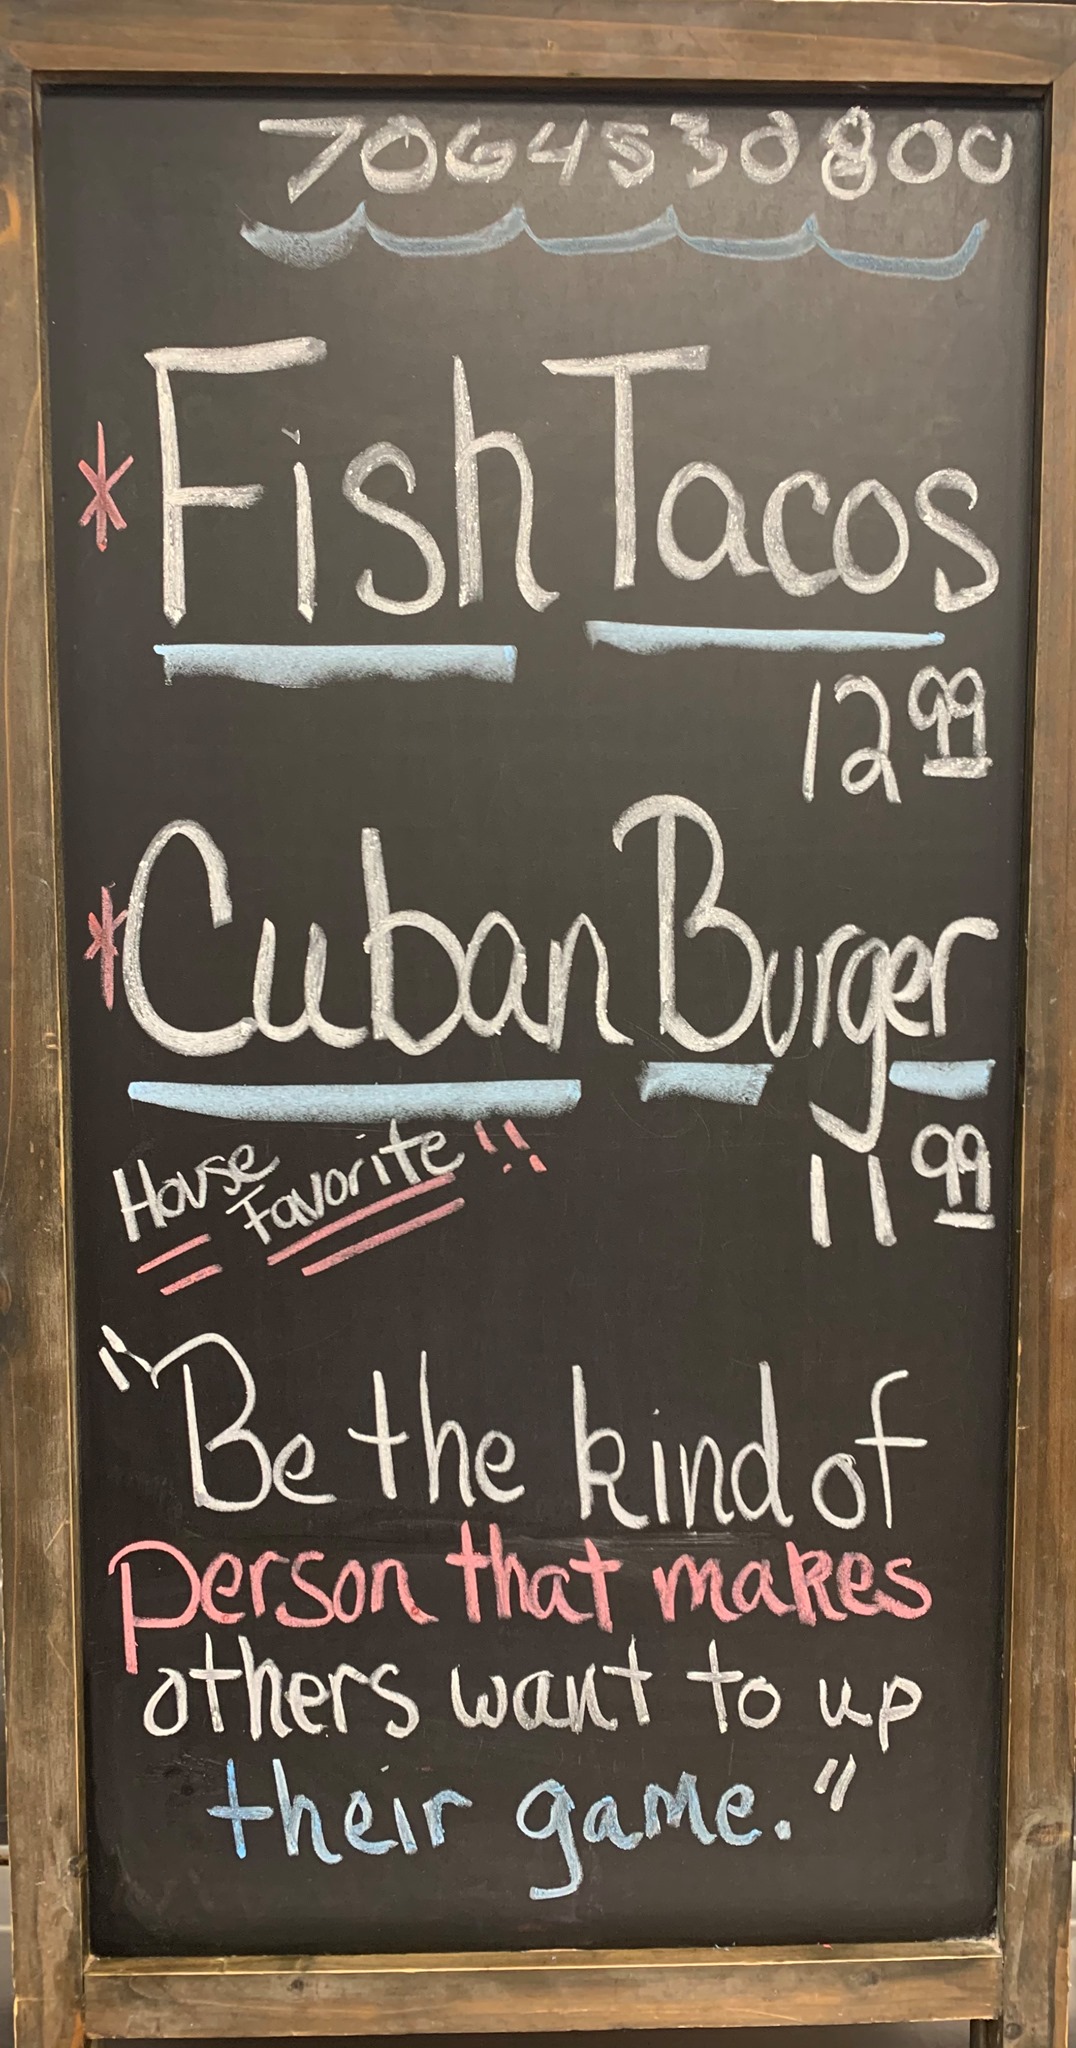 7064530800
* Fish Tacos
12 99
* Cuban Burger
House Favorite !!
11 99
"Be the kind of
person that makes
others want to up
their game."